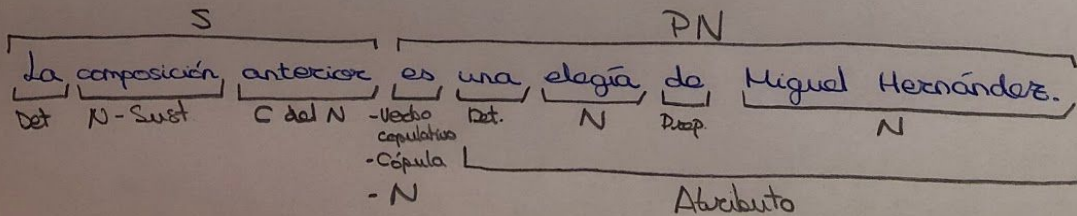 S PN
La composición anterior es una elegía de Miguel Hernández.
Det N-Sust C del N -Verbo Det. N Prep. N
copulativo
-Cópula
-N Atributo